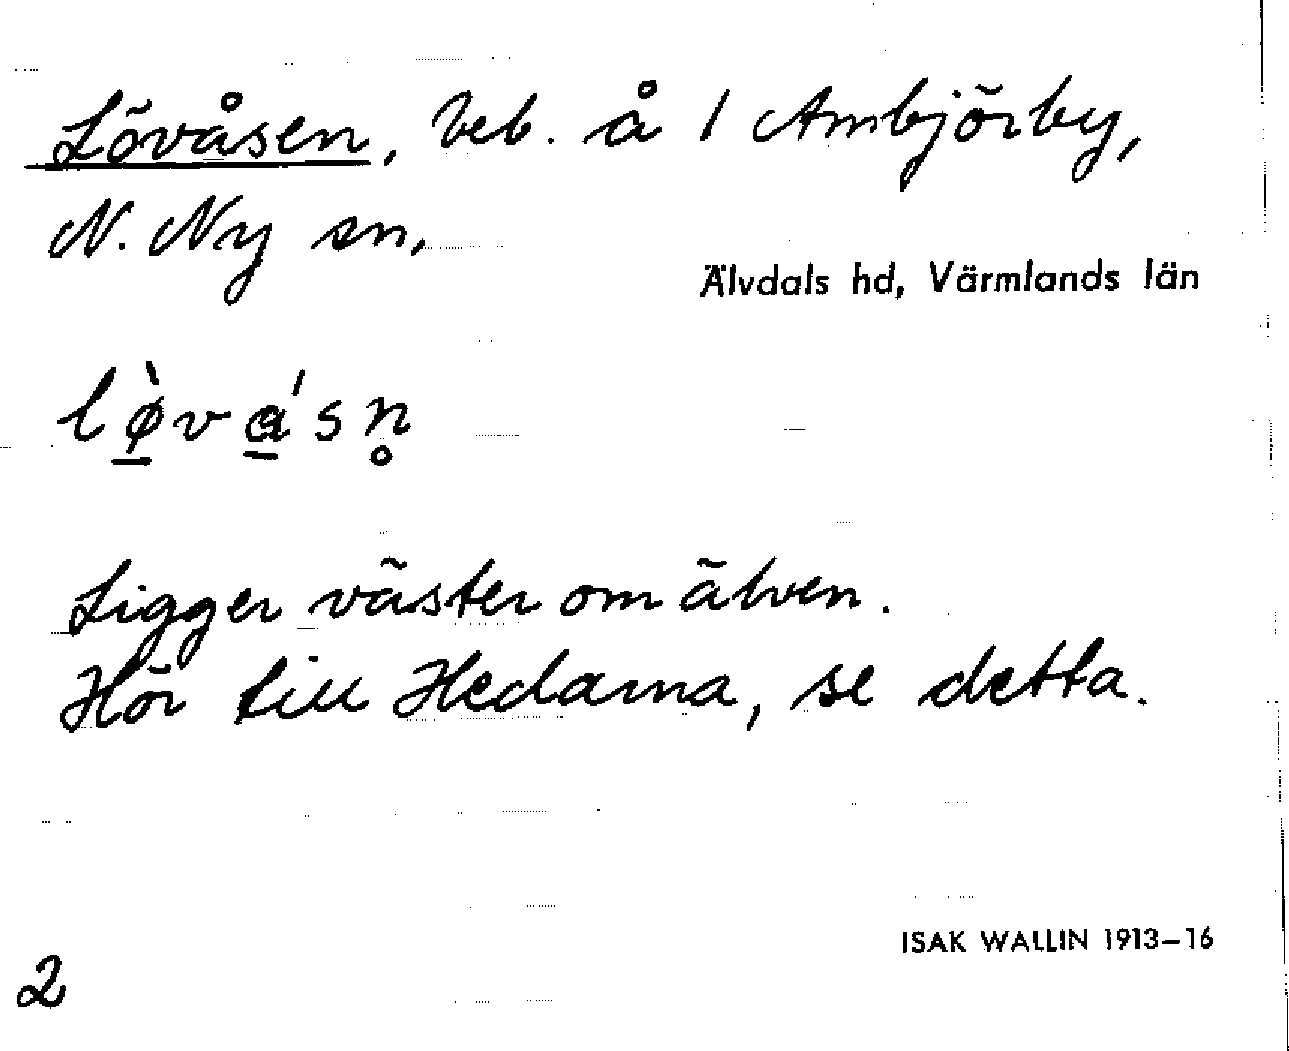 Lövåsen, beb. å 1 Ambjörby,
N. Ny sn,
Älvdals hd, Värmlands län
lø̱̀va̱ʹsn̥
Ligger väster om älven.
Hör till Hedarna, se detta.
ISAK WALLIN 1913–16
2